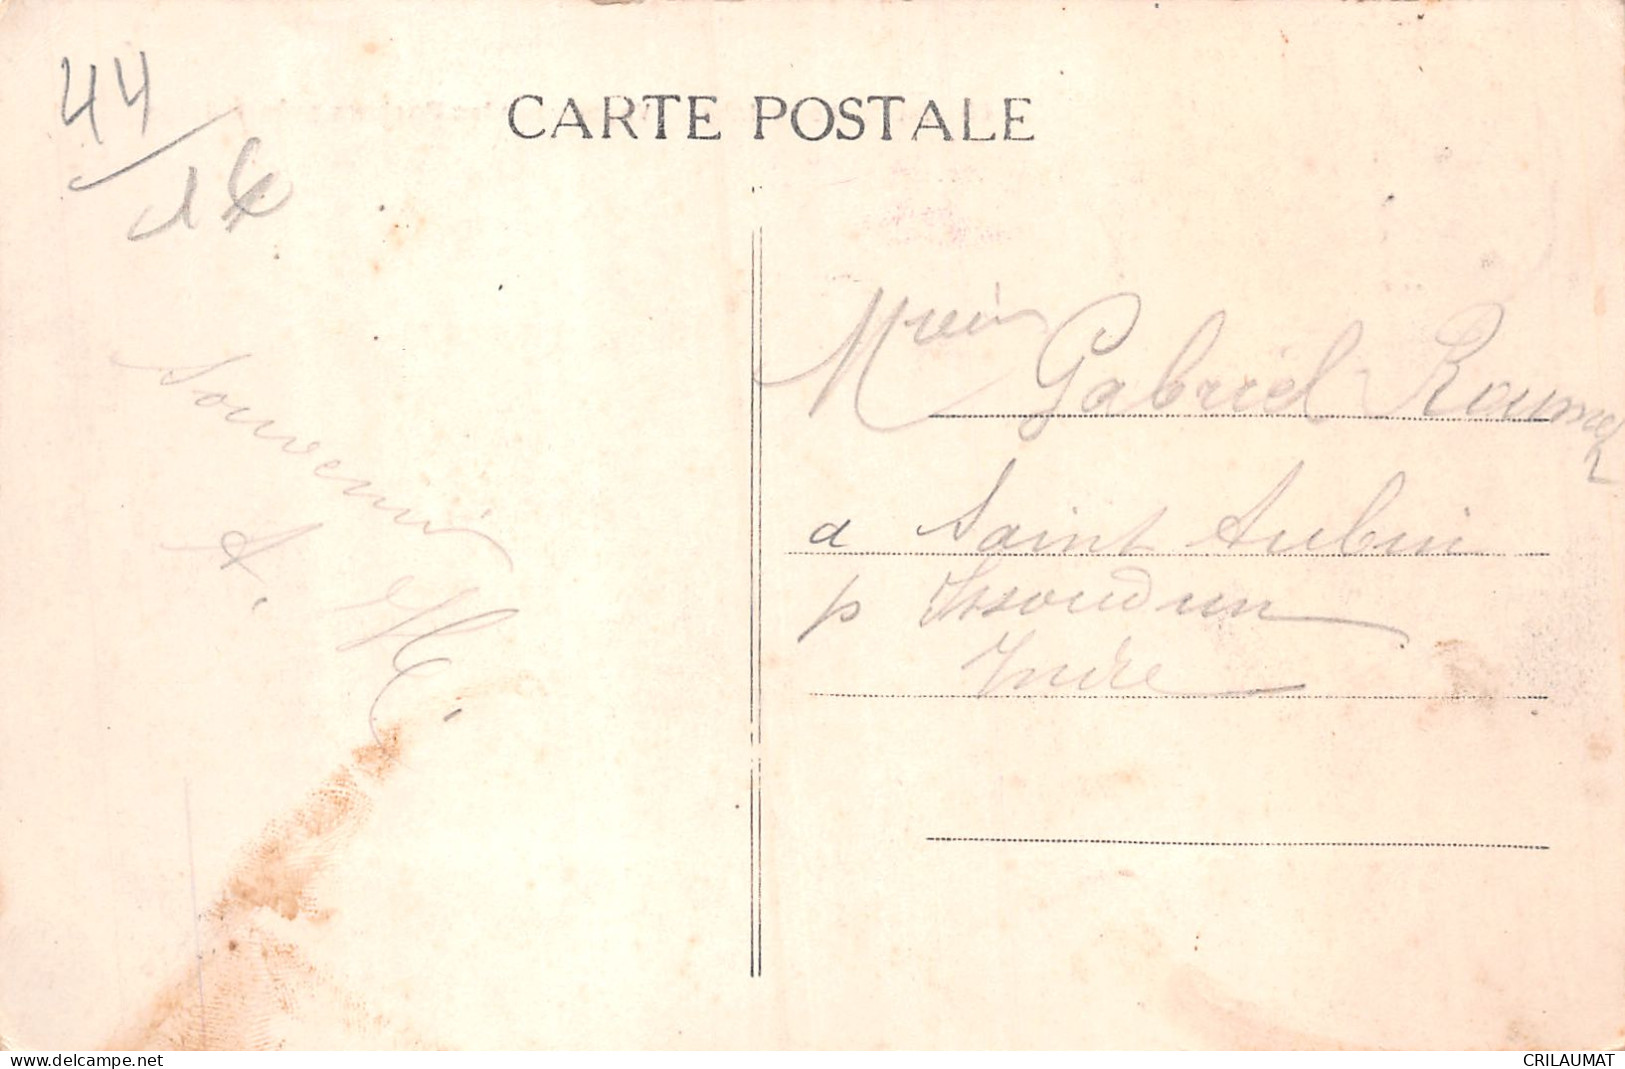 CARTE POSTALE
44/
Souvenir
A. H.
Gabriel
a Saint Aubin
p Issoudun
Indre
www.delcampe.net
CRILAUMAT